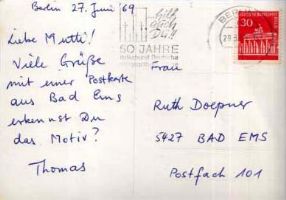 Berlin 27. Juni '69
Liebe Mutti!
Viele Grüße
mit einer Postkarte
aus Bad Ems
erkennst Du
das Motiv?
Thomas
50 JAHRE
30
Frau
Ruth Doepner
5427 BAD EMS
Postfach 101